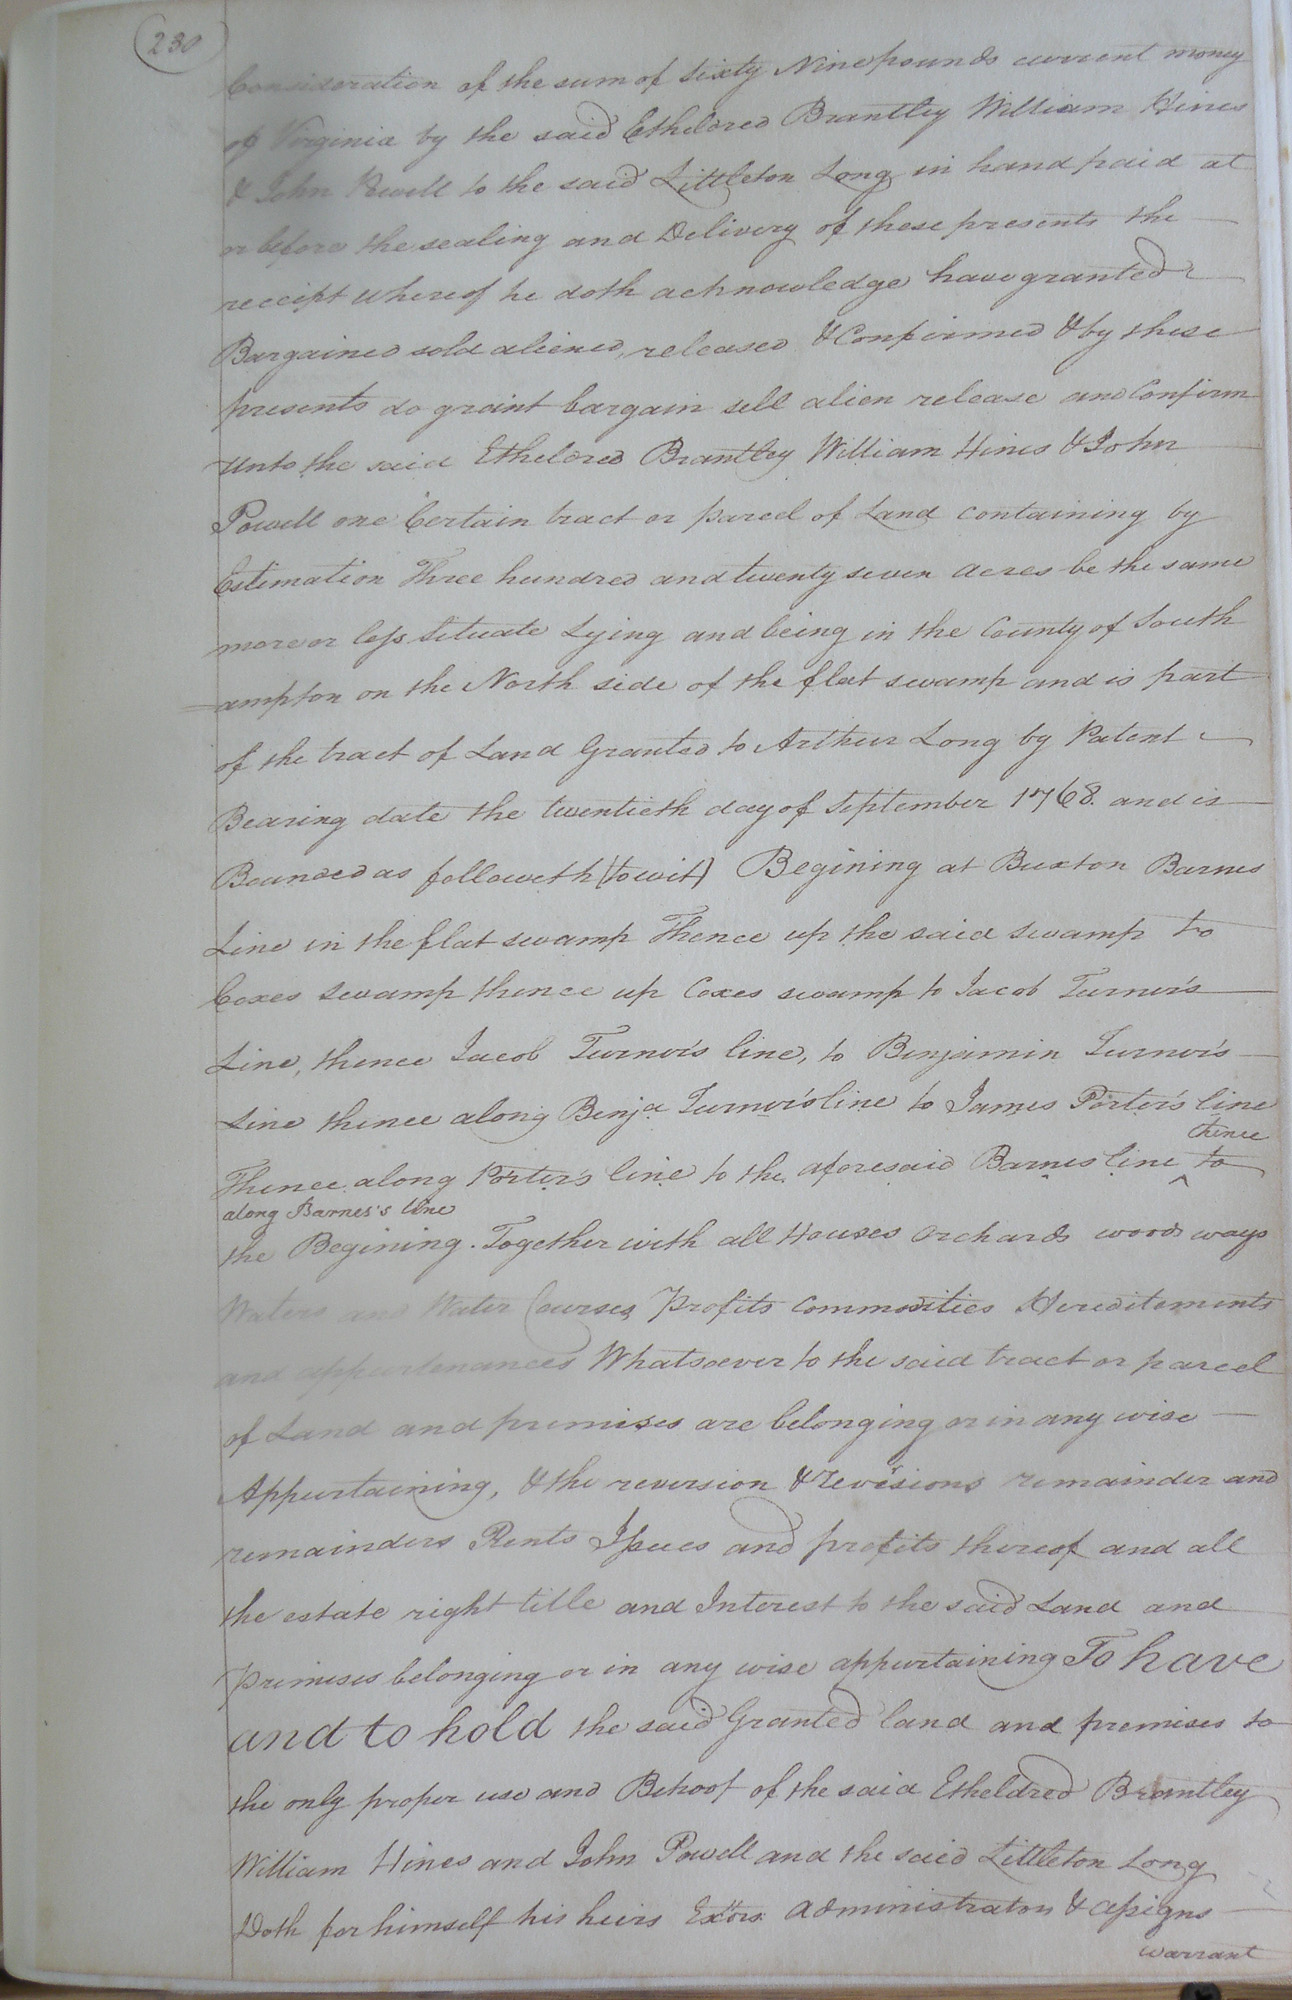 230
Consideration of the sum of Sixty Nine pounds current money
of Virginia by the said Etheldred Brantley William Hines
& John Powell to the said Littleton Long in hand paid at
or before the sealing and Delivery of these presents the
receipt whereof he doth acknowledge have granted
Bargained sold aliened, released & Confirmed & by these
presents do graint bargain sell alien release and Confirm
unto the said Etheldred Brantley William Hines & John
Powell one Certain tract or parcel of Land containing by
Estimation Three hundred and twenty seven acres be the same
more or less Situate Lying and being in the County of South
ampton on the North side of the flat swamp and is part
of the tract of Land Granted to Arthur Long by Patent
Bearing date the twentieth day of September 1768. and is
Bounded as followeth (to wit) Begining at Buxton Barnes
Line in the flat swamp Thence up the said swamp to
Coxes Swamp thence up Coxes swamp to Jacob Turner's
Line, thence Jacob Turner's line, to Benjamin Turner's
Line thence along Benja Turner's line to James Porter's line
thence
Thence along Porter's line to the aforesaid Barnes line ^ to
along Barnes's line
the Begining. Together with all Houses orchards woods ways
Waters and Water Courses, Profits commodities Hereditaments
and appurtenances Whatsoever to the said tract or parcel
of Land and premises are belonging or in any wise
Appurtaining, & the reversion & revisions remainder and
remainders Rents Issues and profits thereof and all
the estate right title and Interest to the said Land and
Primises belonging or in any wise appurtaining To have
and to hold the said Granted land and premises to
the only proper use and Behoof of the said Etheldred Brantley
William Hines and John Powell and the said Littleton Long
Doth for himself his heirs Extors. administrators & assigns
warrant